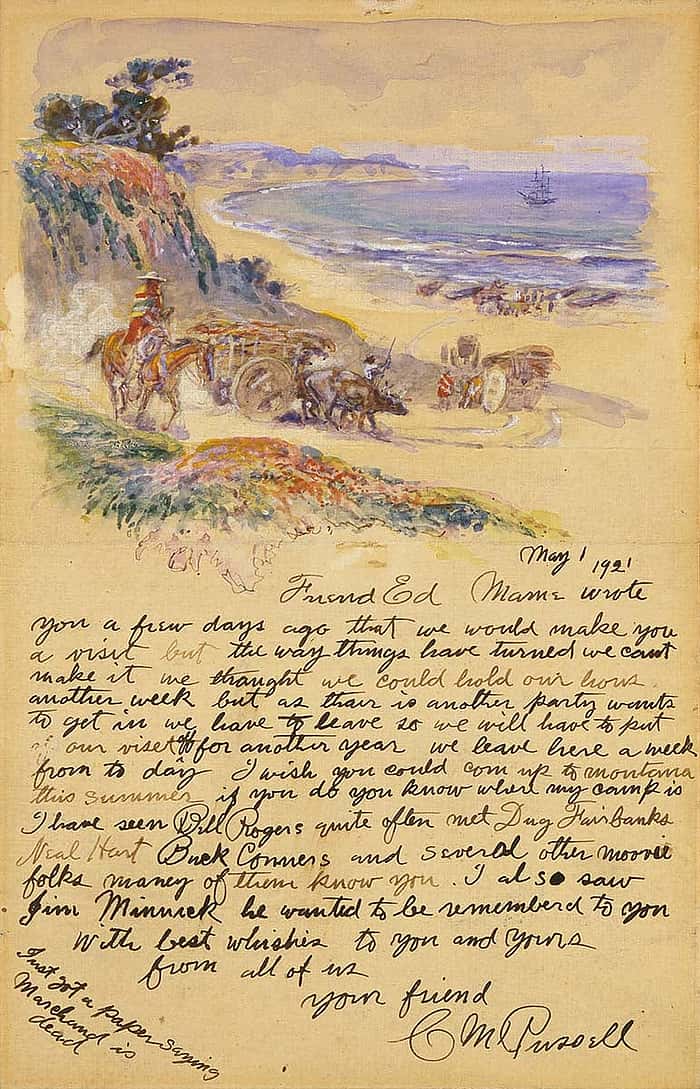 May 1 1921
Friend Ed Mame wrote
you a few days ago that we would make you
a visit but the way things have turned we cant
make it we thaught we could hold our hous
another week but as thair is another party wants
to get in we have to leave so we will have to put
of our viset for another year we leave here a week
from to day I wish you could com up to montana
this summer if you do you know where my camp is
I have seen Bill Rogers quite often met Dug Fairbanks
Neal Hart Buck Conners and several other moovie
folks maney of them know you. I also saw
Jim Minnick he wanted to be rememberd to you
With best whishes to you and yours
from all of us
your friend
C M Russell
Just got a paper saying
Marchand is
dead